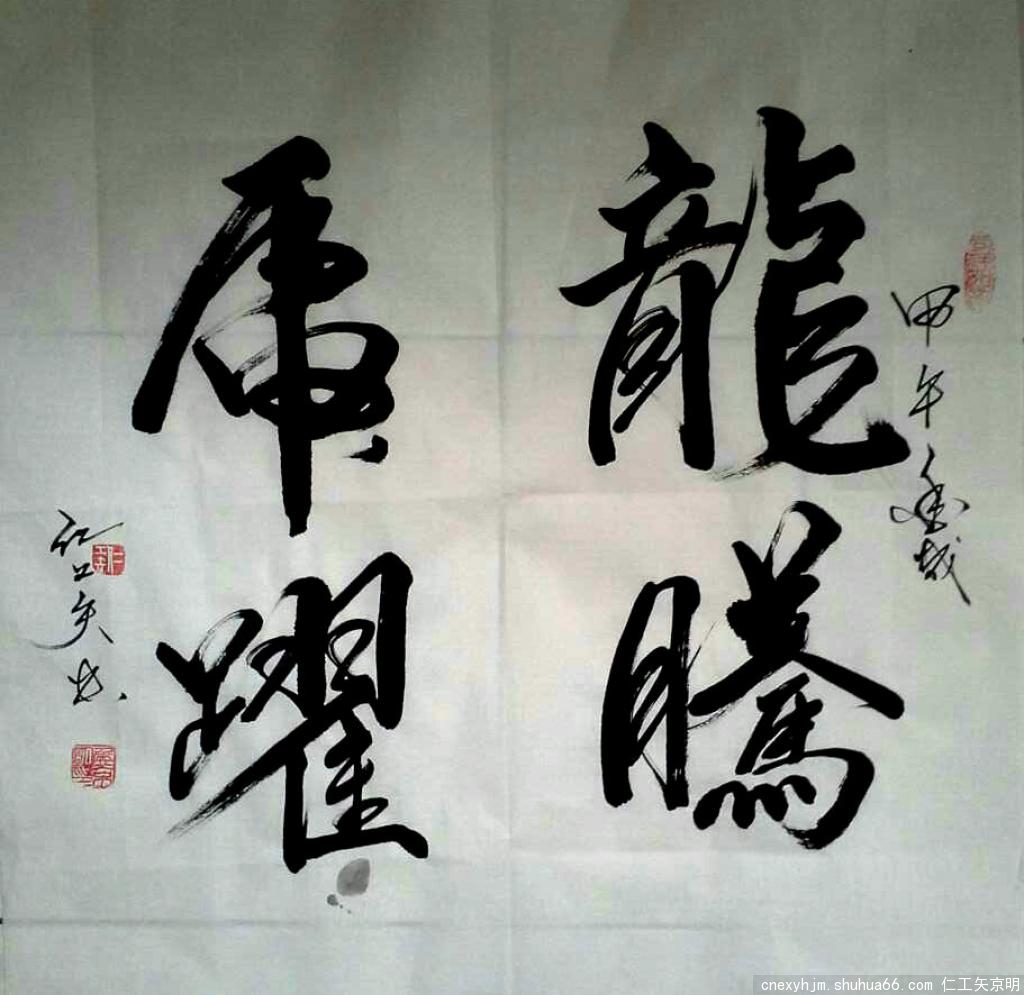 甲午年
龍騰
虎躍
仁工矢书
cnexyhjm.shuhua66.com 仁工矢京明